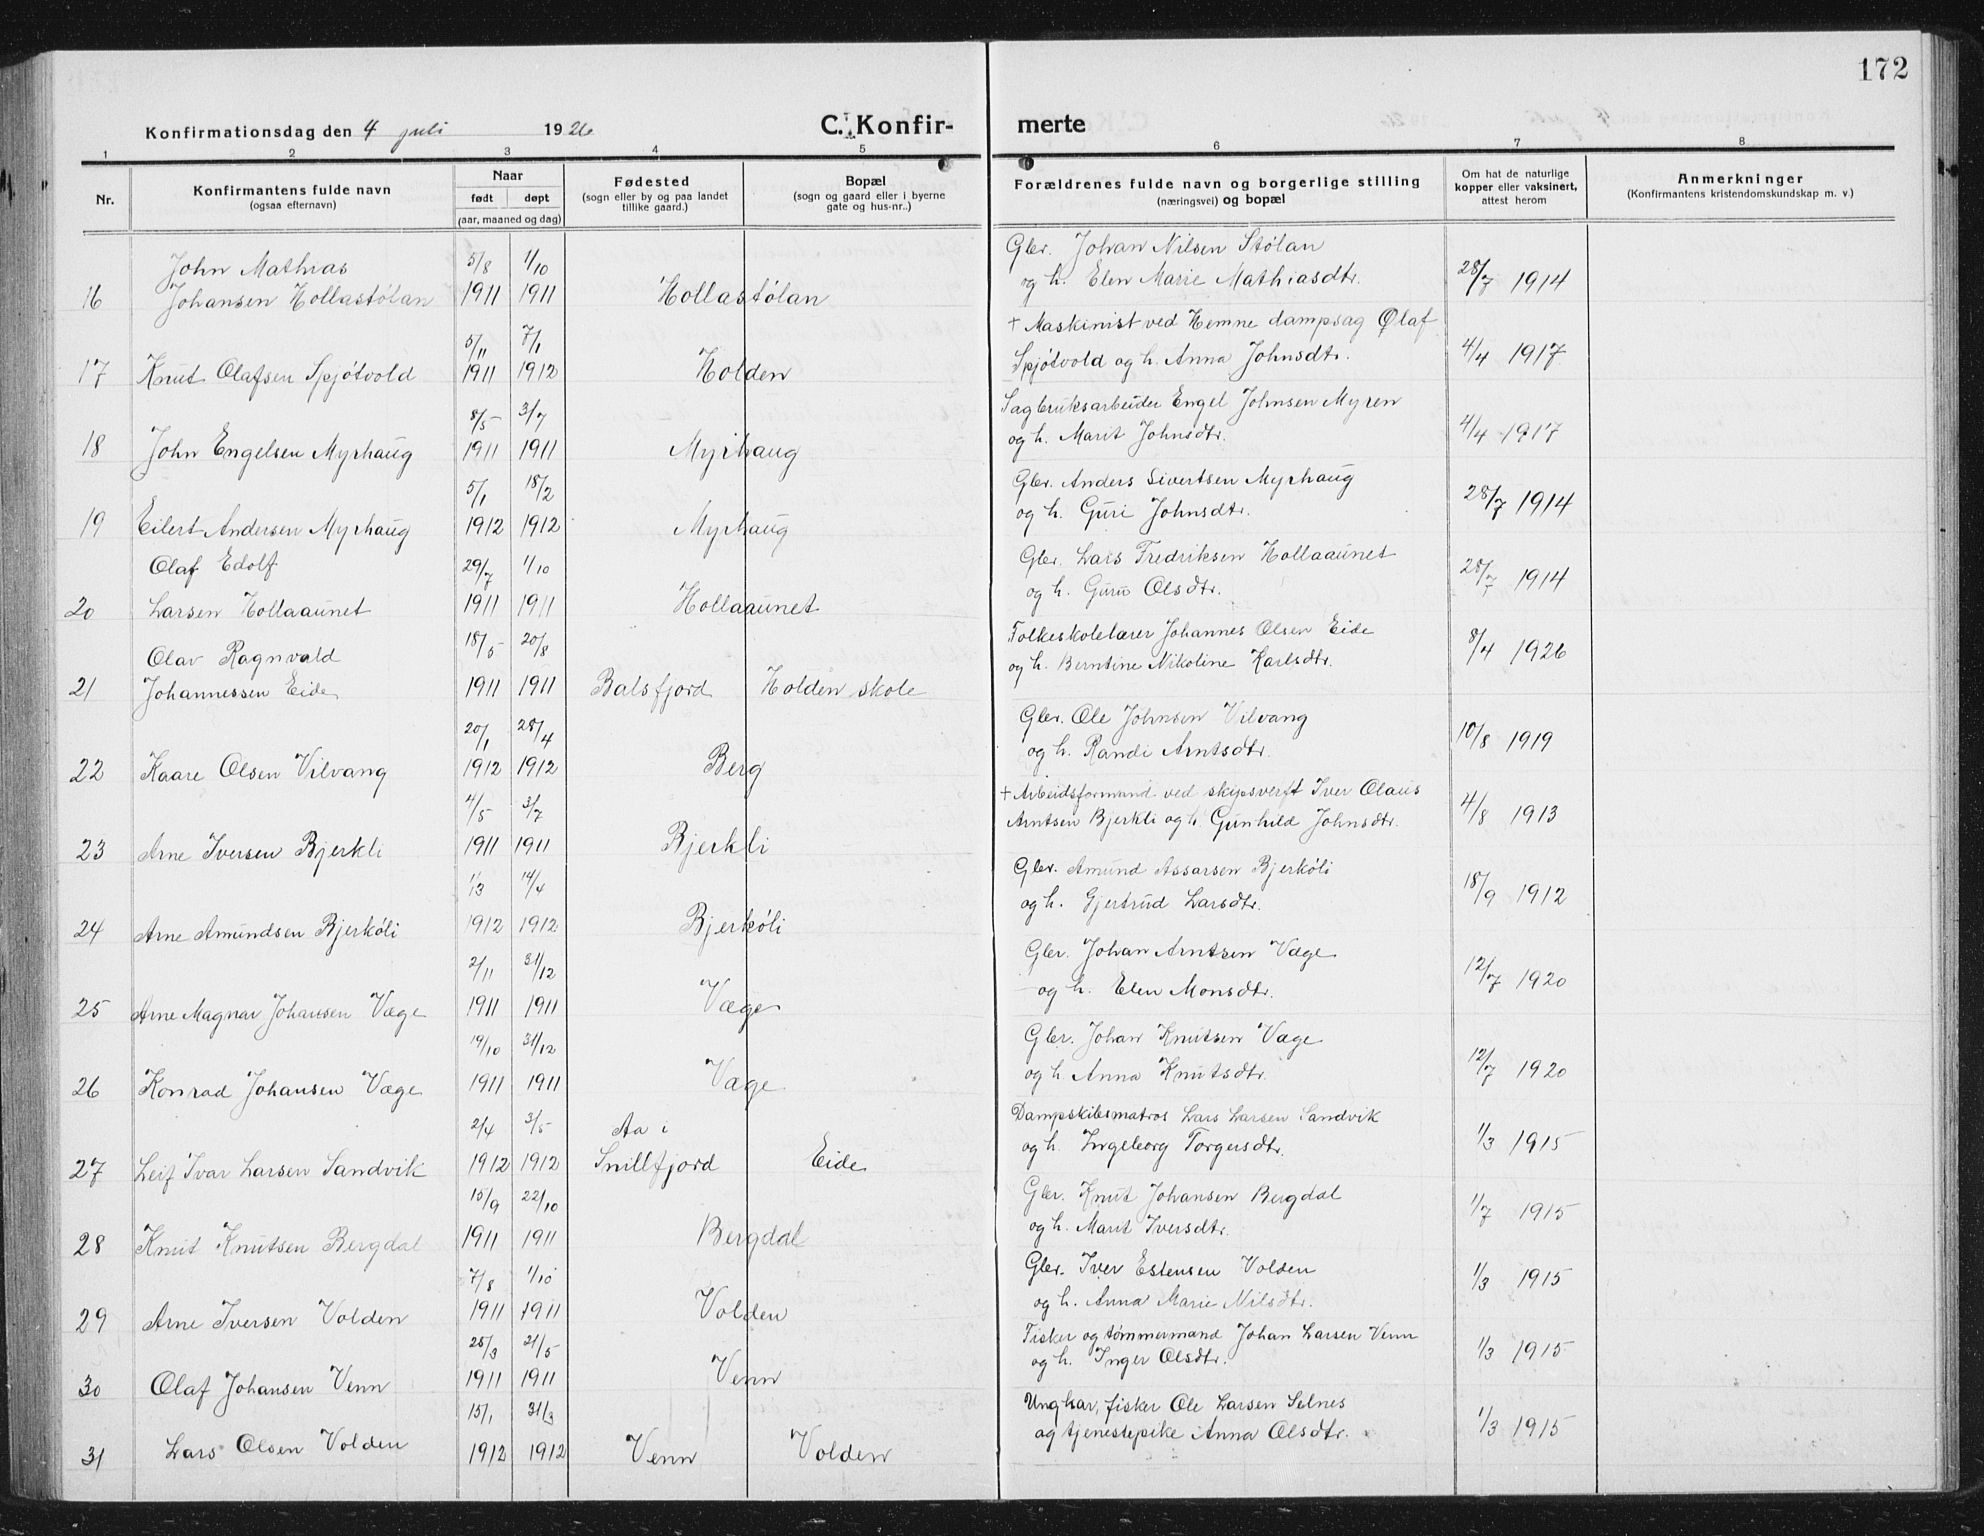 172
Konfirmationsdag den 4 juli 1926
C. Konfir- merte
1 2 3 4 5 6 7 8
Nr.
Konfirmantens fulde navn
(ogsaa efternavn)
Naar
født døpt
(aar, maaned og dag)
Fødested
(sogn eller by og paa landet
tillike gaard.)
Bopæl
(sogn og gaard eller i byerne
gate og hus-nr..)
Forældrenes fulde navn og borgerlige stilling
(næringsvei) og bopæl
Om hat de naturlige
kopper eller vaksinert,
attest herom
Anmerkninger
(Konfirmantens kristendomskundskap m. v.)
John Mathias 5/8 1/10 Gbr. Johan Nilsen Stólan
16 Johansen Hollastólan 1911 1911 Hollastólan og h. Elen Marie Mathiasdtr. 28/7 1914
5/11 7/1 + Maskinist ved Hemne dampsag Olaf
17 Knut Olafsen Spjótvold 1911 1912 Holden Spjótvold og h. Anna Johnsdtr. 4/4 1917
8/5 3/7 Sagbruksarbeider Engel Johnsen Myren
18 John Engelsen Myrhaug 1911 1911 Myrhaug og h. Marit Johnsdtr. 4/4 1917
5/1 18/2 Gbr. Anders Sivertsen Myrhaug
19 Eilert Andersen Myrhaug 1912 1912 Myrhaug og h. Guri Johnsdtr. 28/7 1914
Olaf Edolf 29/7 1/10 Gbr. Lars Fredriksen Hollaaunet
20 Larsen Hollaaunet 1911 1911 Hollaaunet og h. Guru Olsdtr. 28/7 1914
Olav Ragnvald 18/5 20/8 Folkeskolelærer Johannes Olsen Eide
21 Johannessen Eide 1911 1911 Balsfjord Holden skole og h. Berntine Nikoline Karlsdtr. 8/4 1926
20/1 28/4 Gbr. Ole Johnsen Vilvang
22 Kaare Olsen Vilvang 1912 1912 Berg og h. Randi Arntsdtr. 10/8 1919
4/5 3/7 + Arbeidsformand ved skipsverft Iver Olaus
23 Arne Iversen Bjerkli 1911 1911 Bjerkli Arntsen Bjerkli og h. Gunhild Johnsdtr. 4/8 1913
1/3 14/4 Gbr. Amund Assarsen Bjerkóli
24 Arne Amundsen Bjerkóli 1912 1912 Bjerkóli og h. Gjertrud Larsdtr. 18/9 1912
2/11 31/12 Gbr. Johan Arntsen Væge
25 Arne Magnar Johansen Væge 1911 1911 Væge og h. Elen Monsdtr. 12/7 1920
19/10 31/12 Gbr. Johan Knutsen Væge
26 Konrad Johansen Væge 1911 1911 Væge og h Anna Knutsdtr. 12/7 1920
2/4 3/5 Aa i Dampskibsmatros Lars Larsen Sandvik
27 Leif Ivar Larsen Sandvik 1912 1912 Snillfjord Eide og h. Ingeborg Torgersdtr. 1/3 1915
15/9 22/10 Gbr. Knut Johansen Bergdal
28 Knut Knutsen Bergdal 1911 1911 Bergdal og h. Marit Iversdtr. 1/7 1915
7/8 1/10 Gbr. Iver Estensen Volden
29 Arne Iversen Volden 1911 1911 Volden og h. Anna Marie Nilsdtr. 1/3 1915
25/3 21/5 Fisker og tómmermand Johan Larsen Venn
30 Olaf Johansen Venn 1911 1911 Venn og h. Inger Olsdtr. 1/3 1915
15/1 31/3 Ungkar, fisker Ole Larsen Selnes
31 Lars Olsen Volden 1912 1912 Venn Volden og tjenestepike Anna Olsdtr. 1/3 1915